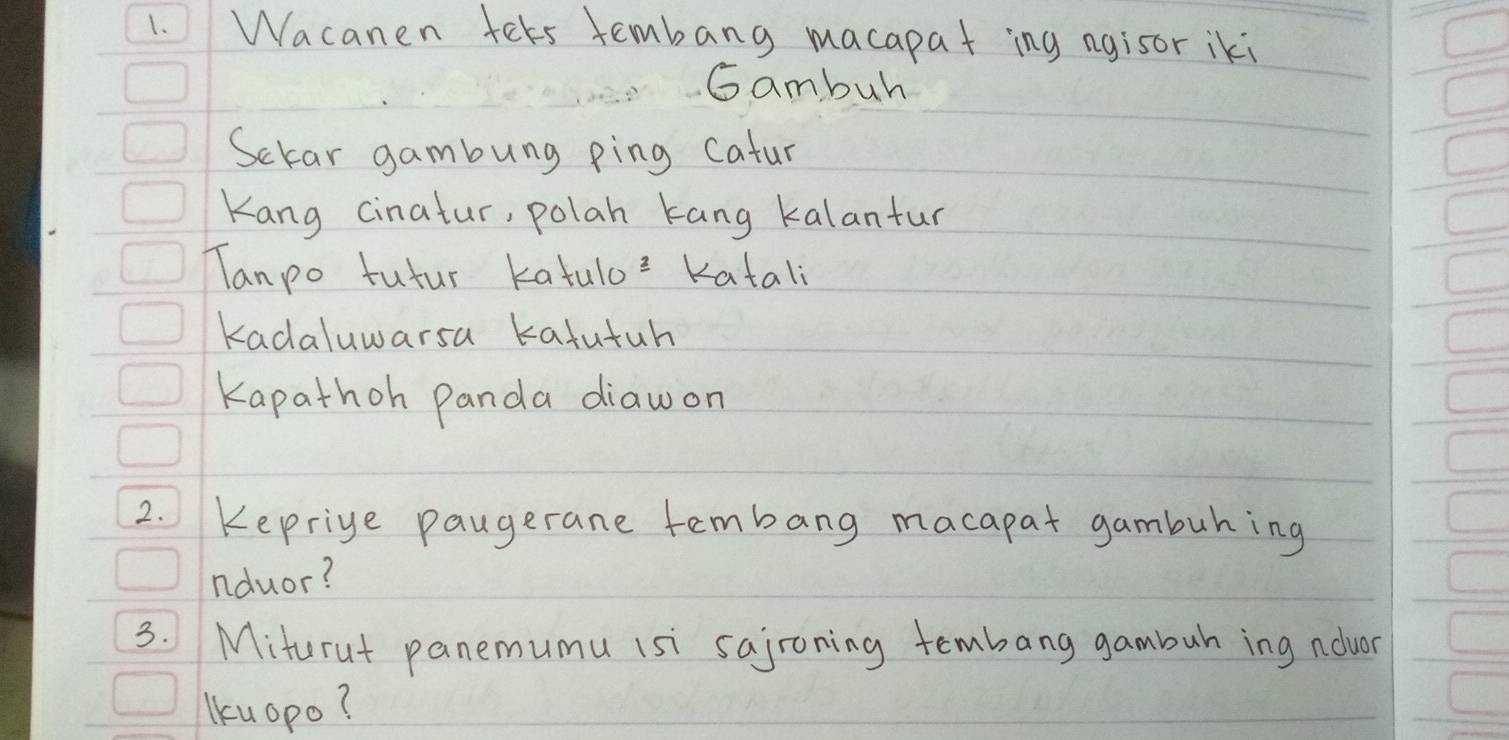 1. Wacanen teks tembang macapat ing ngisor iki
Gambuh
Sekar gambung ping catur
Kang cinatur, polah kang kalantur
Tanpo tutur katulo² katali
Kadaluwarsa katutuh
Kapathoh panda diawon
2. Kepriye paugerane tembang macapat gambuh ing
nduor?
3. Miturut panemumu isi sajroning tembang gambuh ing nduor
Ikuopo?